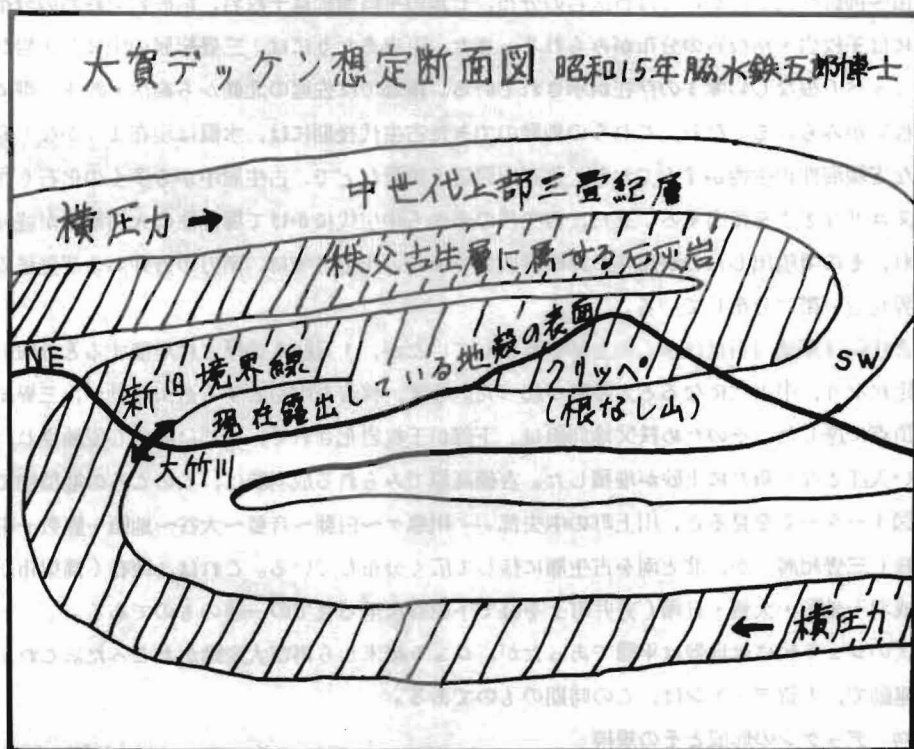 大賀デッケン想定断面図 昭和15年脇水鉄五郎博士
中世代上部三畳紀層
横圧力→
秩父古生層に属する石灰岩
NE
SW
新旧境界線
現在露出している地殻の表面
クリッペ
(根なし山)
大竹川
←横圧力